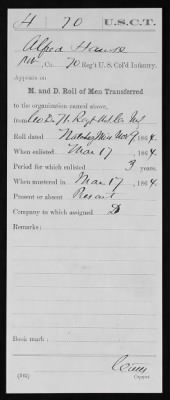 H 70 U.S.C.T.
Alfred
Co. 70 Reg't U. S. Col'd Infantry.
Appears on
M. and D. Roll of Men Transferred
to the organization named above,
from Co D 71 Regt Col Inf
Roll dated Natchez Miss Nov 9, 1864.
When enlisted Mar 17, 1864.
Period for which enlisted 3 years.
When mustered in Mar 17, 1864.
Present or absent Present
Company to which assigned D
Remarks:
Book mark:
(362)
Copyist.